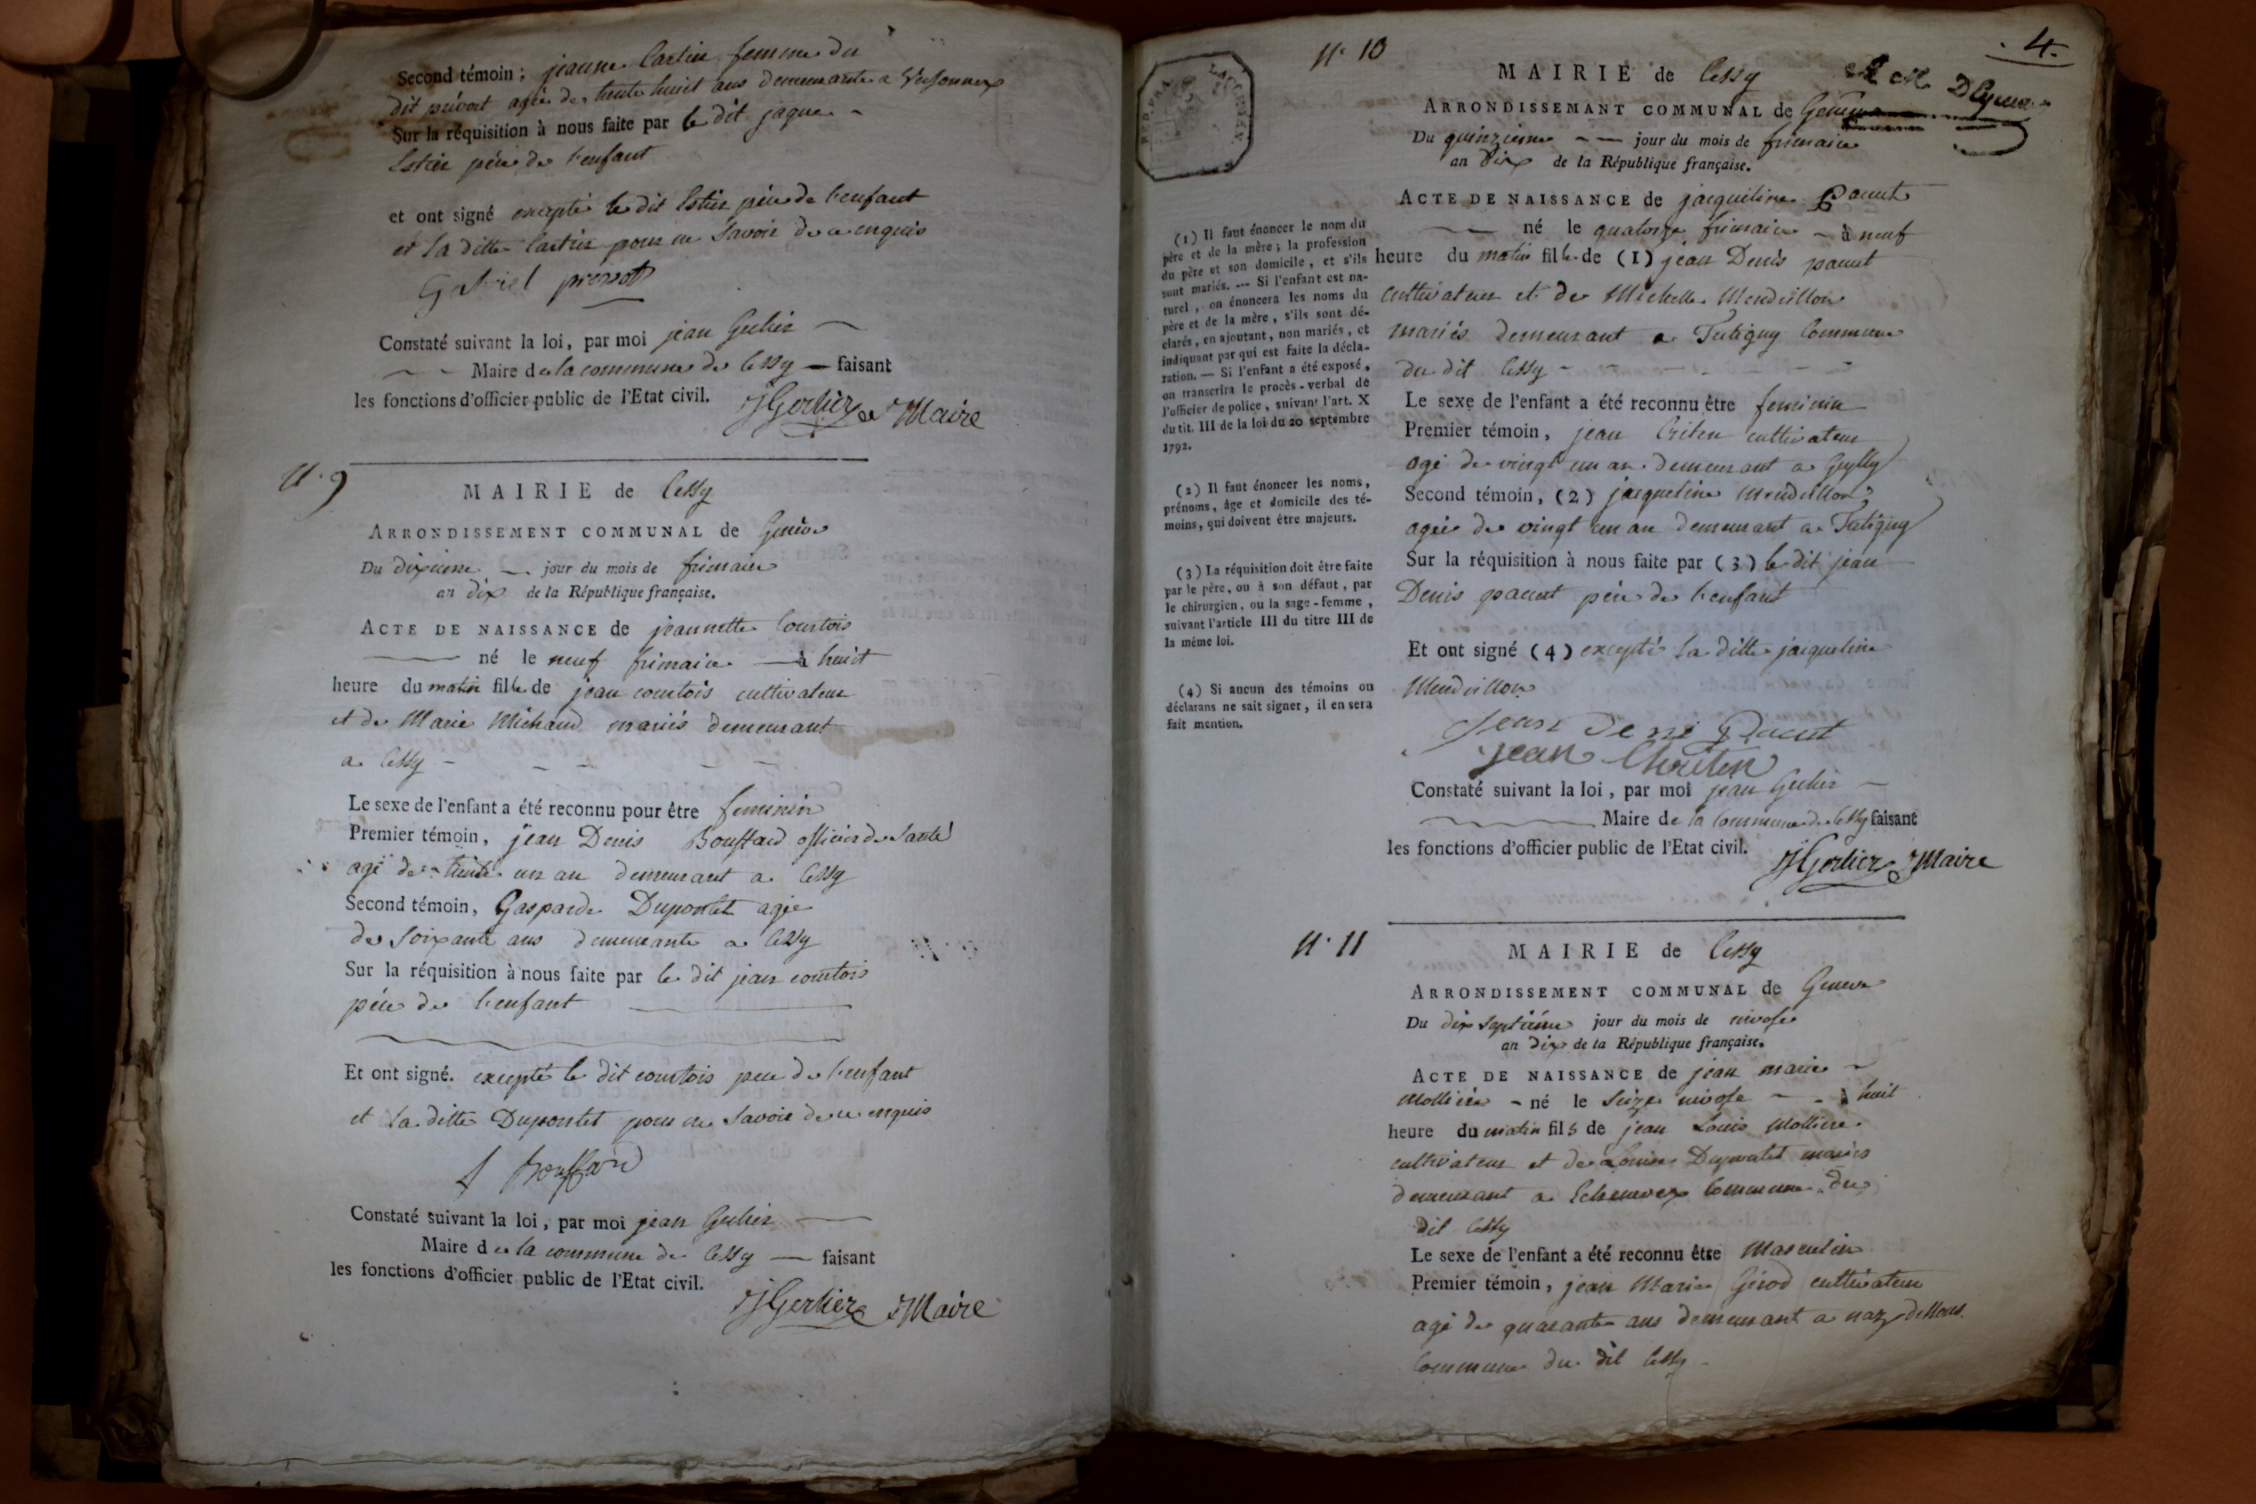 Second témoin; jeanne Castin femme du
dit prévost agée de trente huit ans demeurante a Versonnex
Sur la réquisition à nous faite par le dit jaque
Estier pére de l'enfant
et ont signé excepté le dit Estier pére de l'enfant
et la ditte Castin pour ne Savoir de ce enquis
Gabriel prévost
Constaté suivant la loi, par moi jean Gerlier
Maire de la commune de Cessy faisant
les fonctions d'officier public de l'Etat civil. JGerlier Maire
N.° 9
MAIRIE de Cessy
ARRONDISSEMENT COMMUNAL de Genève
Du dixieme jour du mois de frimaire
an dix de la République française.
ACTE DE NAISSANCE de jeannette Courtois
né le neuf frimaire à huit
heure du matin fille de jean courtois cultivateur
et de Marie Michaud mariés demeurant
a Cessy
Le sexe de l'enfant a été reconnu pour être feminin
Premier témoin, jean Denis Bouffard officier de Santé
agé de trente un an demeurant a Cessy
Second témoin, Gasparde Dupontet agée
de Soixante ans demeurante a Cessy
Sur la réquisition à nous faite par le dit jean courtois
pére de l'enfant
Et ont signé. excepté le dit courtois pere de l'enfant
et la ditte Dupontet pour ne Savoir de ce enquis
Bouffard
Constaté suivant la loi, par moi jean Gerlier
Maire de la commune de Cessy faisant
les fonctions d'officier public de l'Etat civil.
JGerlier Maire
4.
N.° 10
MAIRIE de Cessy
ARRONDISSEMANT COMMUNAL de Genève
Du quinzieme jour du mois de frimaire
an dix de la République française.
ACTE DE NAISSANCE de jacqueline Pacut
né le quatorze frimaire à neuf
heure du matin fille de (1) jean Denis pacut
cultivateur et de Michelle Mendrillon
mariés demeurant a Tutigny Commune
du dit Cessy
Le sexe de l'enfant a été reconnu être feminin
Premier témoin, jean Criten cultivateur
agé de vingt un an demeurant a
Second témoin, (2) jacqueline Mendrillon
agée de vingt un an demeurant a Tutigny
Sur la réquisition à nous faite par (3) le dit jean
Denis pacut pére de l'enfant
Et ont signé (4) excepté la ditte jacqueline
Mendrillon
Jean Deni Pacut
jean Chriten
Constaté suivant la loi, par moi jean Gerlier
Maire de la Commune de Cessy faisant
les fonctions d'officier public de l'Etat civil.
JGerlier Maire
(1) Il faut énoncer le nom du
père et de la mère; la profession
du père et son domicile, et s'ils
sont mariés. — Si l'enfant est na-
turel, on énoncera les noms du
père et de la mère, s'ils sont dé-
clarés, en ajoutant, non mariés, et
indiquant par qui est faite la décla-
ration. — Si l'enfant a été exposé,
on transcrira le procès-verbal de
l'officier de police, suivant l'art. X
du tit. III de la loi du 20 septembre
1792.
(2) Il faut énoncer les noms,
prénoms, âge et domicile des té-
moins, qui doivent être majeurs.
(3) La réquisition doit être faite
par le père, ou à son défaut, par
le chirurgien, ou la sage-femme,
suivant l'article III du titre III de
la même loi.
(4) Si aucun des témoins ou
déclarans ne sait signer, il en sera
fait mention.
N.° 11
MAIRIE de Cessy
ARRONDISSEMENT COMMUNAL de Geneve
Du dix Septiéme jour du mois de nivose
an dix de la République française.
ACTE DE NAISSANCE de jean marie
Molliére né le Seize nivose à huit
heure du matin fils de jean Louis Molliere
cultivateur et de Louise Dupontet mariés
demeurant a Echenevex Commune du
dit Cessy
Le sexe de l'enfant a été reconnu être Masculin
Premier témoin, jean Marie Girod cultivateur
agé de quarante ans demeurant a naz dessous
Commune du dit Cessy